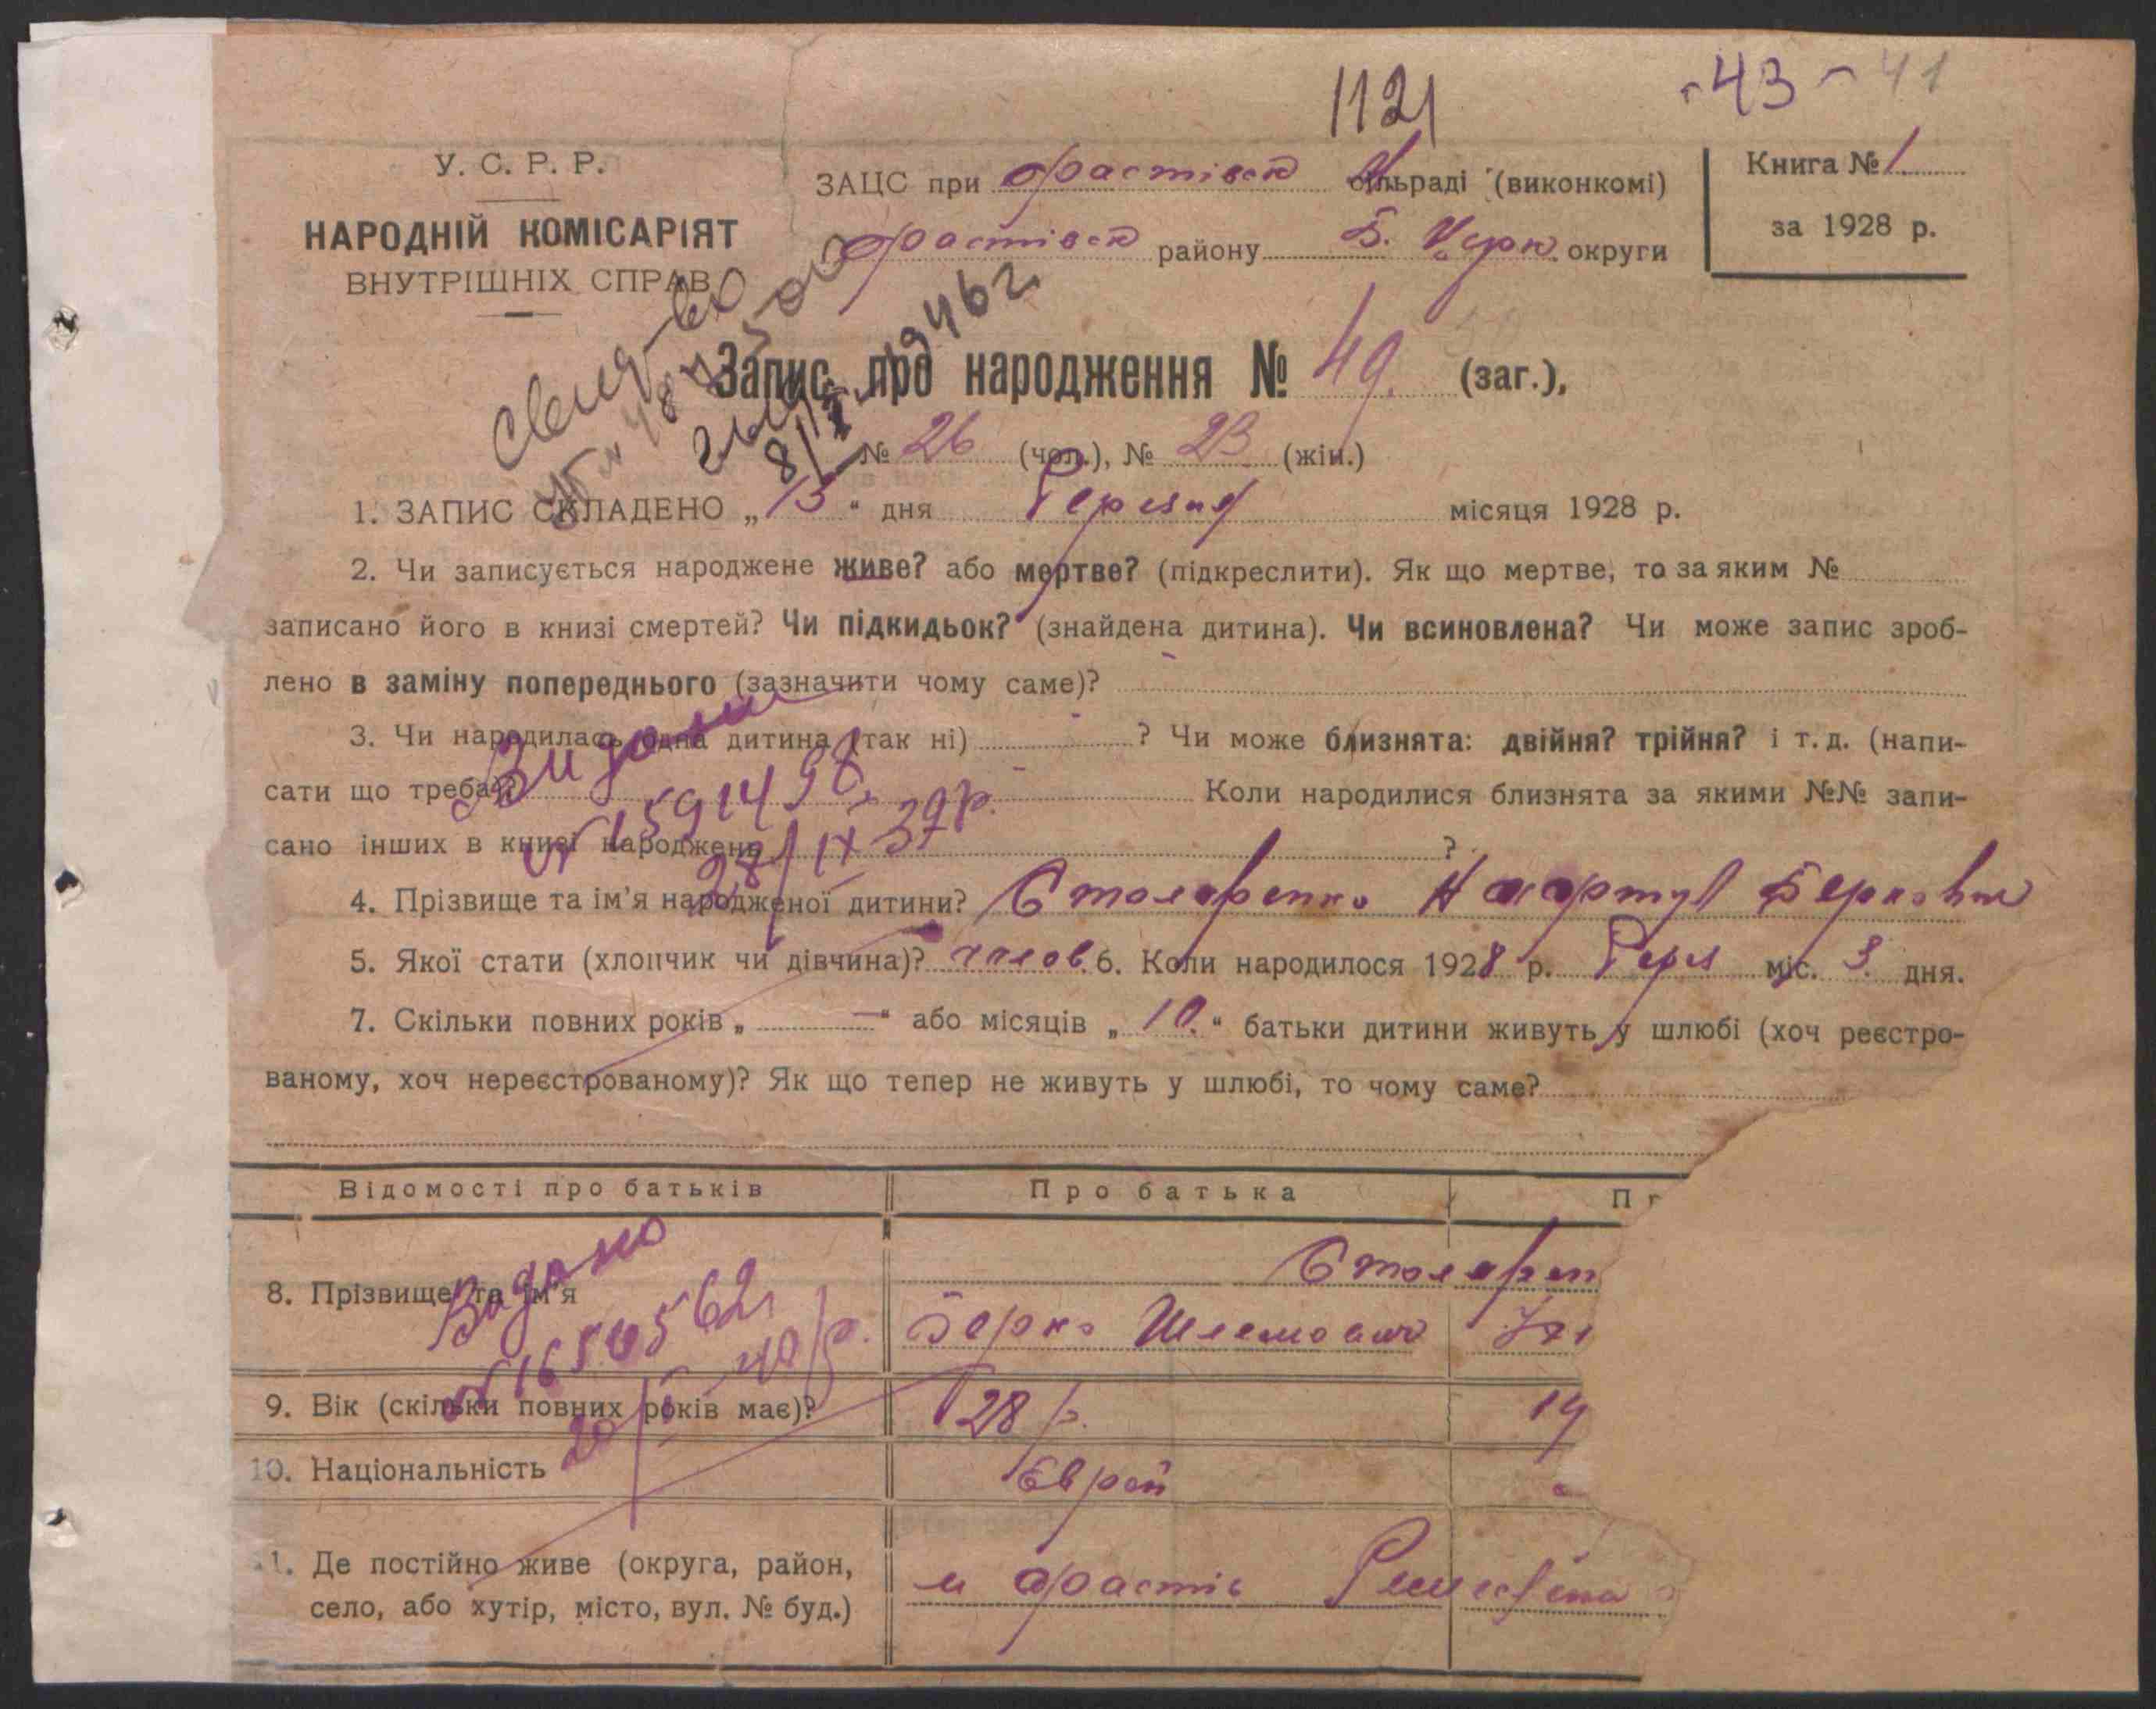 1121
43 - 41
У. С. Р. Р.
НАРОДНІЙ КОМІСАРІЯТ
ВНУТРІШНІХ СПРАВ
ЗАЦС при Фастівск сільраді (виконкомі)
Фастівск району Б. Церк. округи
Книга № 1
за 1928 р.
Запис про народження № 49. (заг.),
№ 26 (чол.), № 23 (жін.)
1. ЗАПИС СКЛАДЕНО „13“ дня Березня місяця 1928 р.
2. Чи записується народжене живе? або мертве? (підкреслити). Як що мертве, то за яким №
записано його в книзі смертей? Чи підкидьок? (знайдена дитина). Чи всиновлена? Чи може запис зроб-
лено в заміну попереднього (зазначити чому саме)?
3. Чи народилась одна дитина (так ні) ? Чи може близнята: двійня? трійня? і т. д. (напи-
сати що треба)? Коли народилися близнята за якими №№ запи-
сано інших в книзі народжень ?
4. Прізвище та ім'я народженої дитини? Столяренко
5. Якої стати (хлопчик чи дівчина)? 6. Коли народилося 1928 р. Берез міс. 3. дня.
7. Скільки повних років „ —“ або місяців „10.“ батьки дитини живуть у шлюбі (хоч реєстро-
ваному, хоч нереєстрованому)? Як що тепер не живуть у шлюбі, то чому саме?
Відомості про батьків Про батька
8. Прізвище та ім'я Столярен
Берко Шлемович
9. Вік (скільки повних років має)? 28 р. 19
10. Національність Єврей
11. Де постійно живе (округа, район,
село, або хутір, місто, вул. № буд.) м Фастів
Видано
28/IX 39р.
Видано
40р.
1946 г.